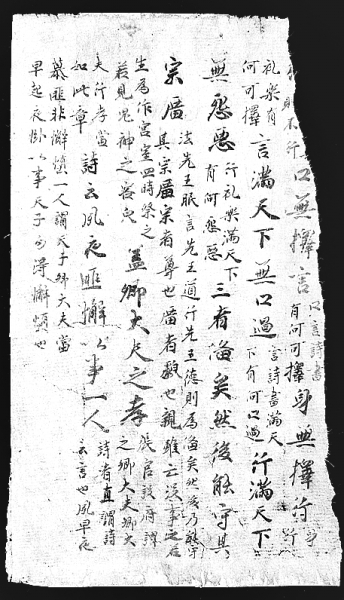 則不行口無擇言口言詩書有何可擇身無擇行身行
礼樂有何可擇言滿天下無口過言詩書滿天下有何口過行滿天下
無怨惡行礼樂滿天下有何怨惡三者俻矣然後能守其
宗廟法先王服言先王道行先王德則為俻矣然後乃能守其宗廟宗者尊也廟者皃也親雖亡沒事之若
生為作宮室四時祭之若見鬼神之容皃蓋卿大夫之孝張官設府謂之卿大夫卿大
夫行孝當如此章詩云夙夜匪懈以事一人詩者直謂詩云言也夙早夜
暮匪非懈惰一人謂天子卿大夫當早起夜卧以事天子勿得懈惰也